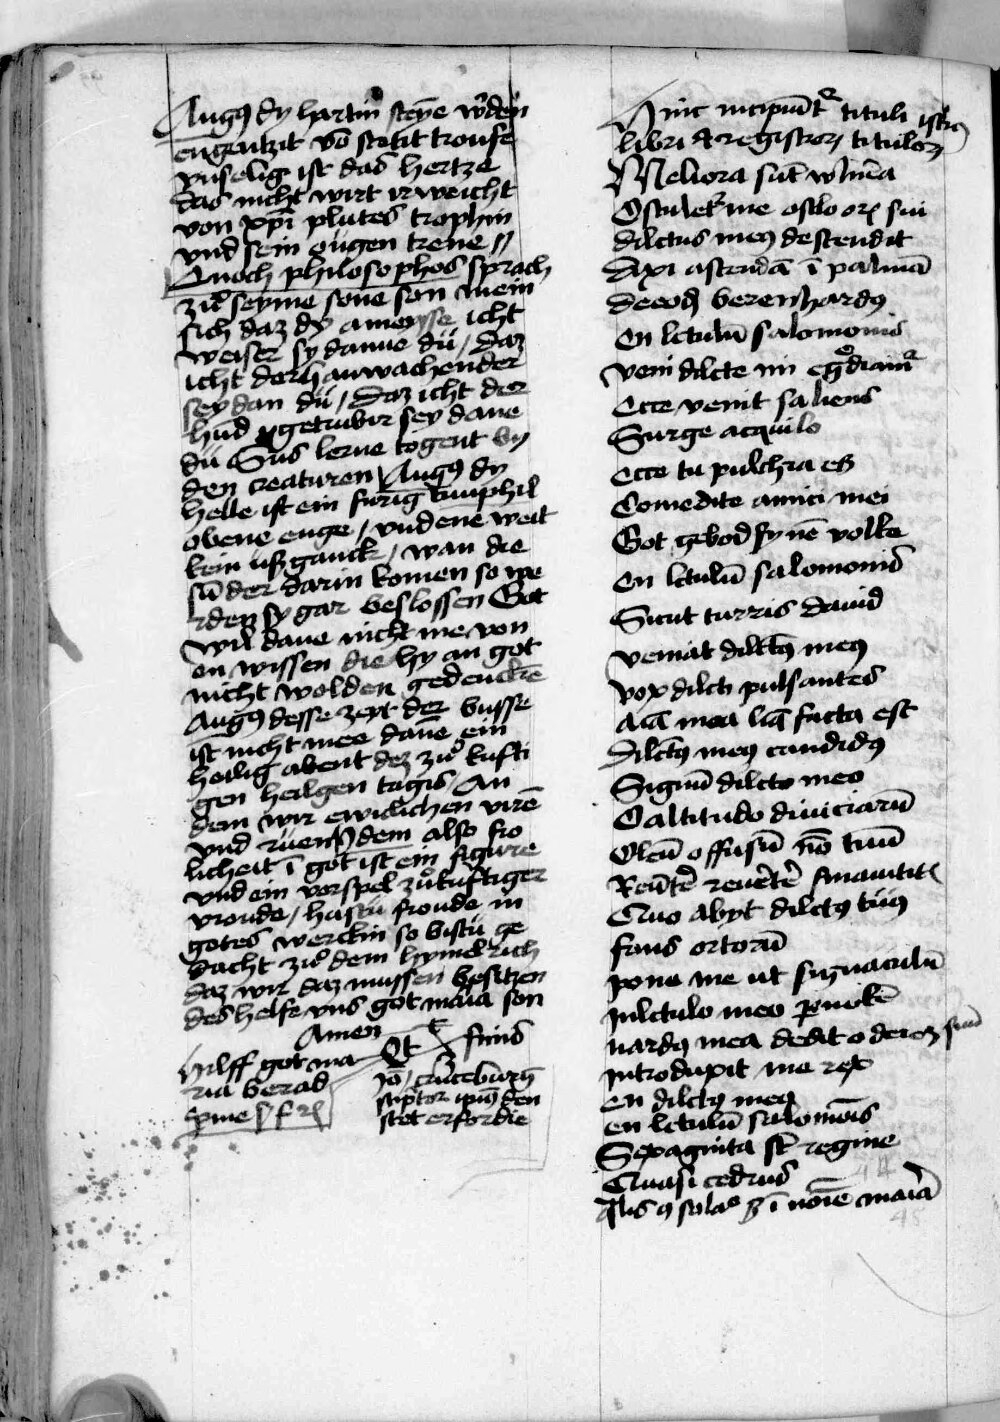 Augꝰ dy hartin steyne wˀden
engentzit vō stetit troufe
vnselig ist das hertze
das nicht wirt irweicht
von xp̄i plutes trophin
vnd sein ougen trene
Enoch philosophos sprach
zuͦ seyme sone son mein
sich daz dy ameysse icht
weiser sy danne du / daz
icht der hanwachender
sey dan du / daz icht der
hūd getruwir sey dane
du Sus lerne togent by
den creaturen Augꝰ dy
helle ist ein furig
obene enge / vnd ene weit
kein ußganck / wan die
sūder darin komen so we
rden sy gar beslossen Got
wil dane nicht me von
en wissen die hy an got
nicht wolden gedencken
Augꝰ desse zeyt der busse
ist nicht mee dane ein
heilig abent dez zuͦ kufti
gen heilgen tagis / An
dem wir ewiclichen virē
vnd ruen dem also fro
licheit ī got ist ein figure
vnd ein vorspel zuͦkuftiger
vroude / hastu froude in
gotes werckin so bistu ge
dacht zuͦ dem hymelrich
daz wir daz mussen besitzen
des helfe vns got maria son
Amen
Hilff got ma
ria berad
Et finis
scriptor ipiꝰ den
stet erfordie
Hic incipiūtˀ tituli istiꝰ
libri & registrorꝝ titulorꝝ
Meliora sūt vbera
Osculetˀ me osculo orꝭ sui
dilectus meꝰ descendit
Dixi ascendā ī palmā
decoꝰ berenhardꝰ
En lectulū salomonis
veni dilecte mi egˀdiamˀ
Ecce venit saliens
Surge acquilo
Ecce tu pulchra es
Comedite amici mei
Got gebod synē volke
En lectulū salomonis
Sicut turris dauid
veniat dilectꝰ meꝰ
vox dilecti pulsantes
Aīa mea liq̄facta est
Dilectꝰ meꝰ candidꝰ
Signū dilecto meo
O altitudo diuiciarū
Oleū effusū nō tuū
Reūtˀe reuˀtˀe sunamitis
Quo abyt dilectꝰ tuꝰ
fons ortorū
pone me ut signaculū
In lectulo meo ꝑ noctē
nardꝰ mea dedit oderem suū
Introduxit me rex
en dilectꝰ meꝰ
en lectulū salomōis
Sexaginta sūt regine
Quasi cedrus